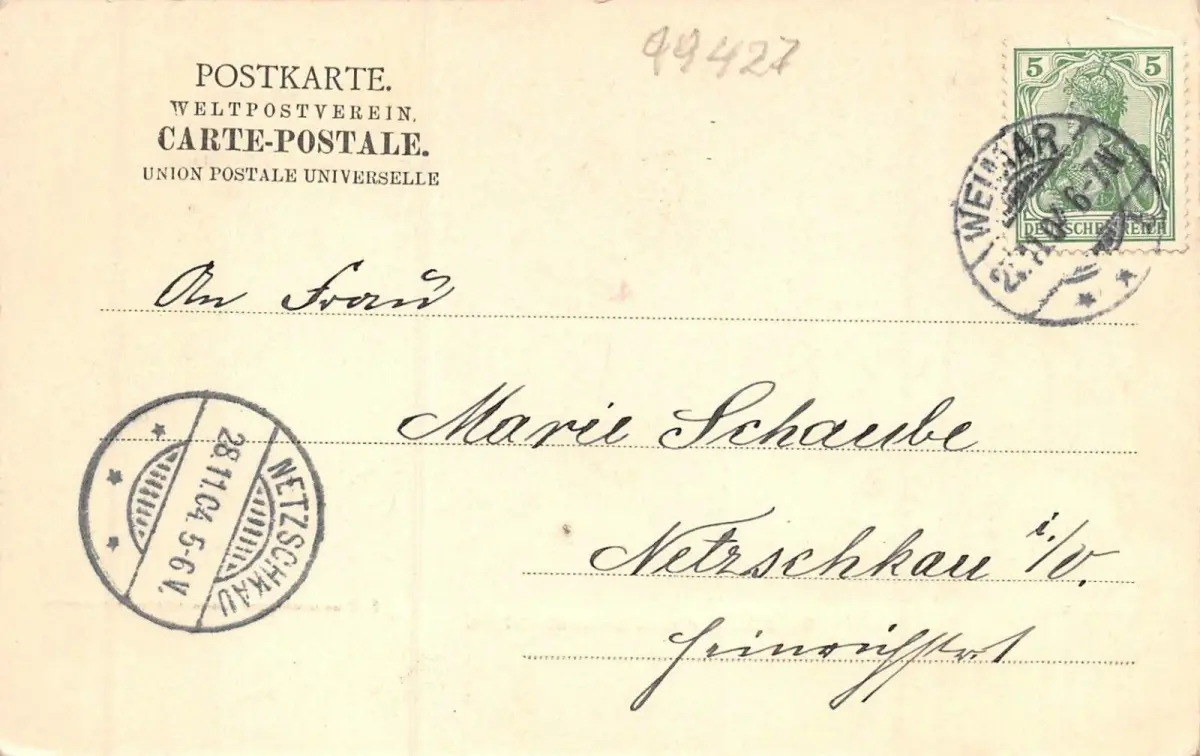 POSTKARTE.
WELTPOSTVEREIN.
CARTE-POSTALE.
UNION POSTALE UNIVERSELLE
99427
5 5
DEUTSCHES REICH
WEIMAR
6-7N
An Frau
Marie Schaube
Netzschkau i./V.
NETZSCHKAU
28.11.04. 5-6 V.